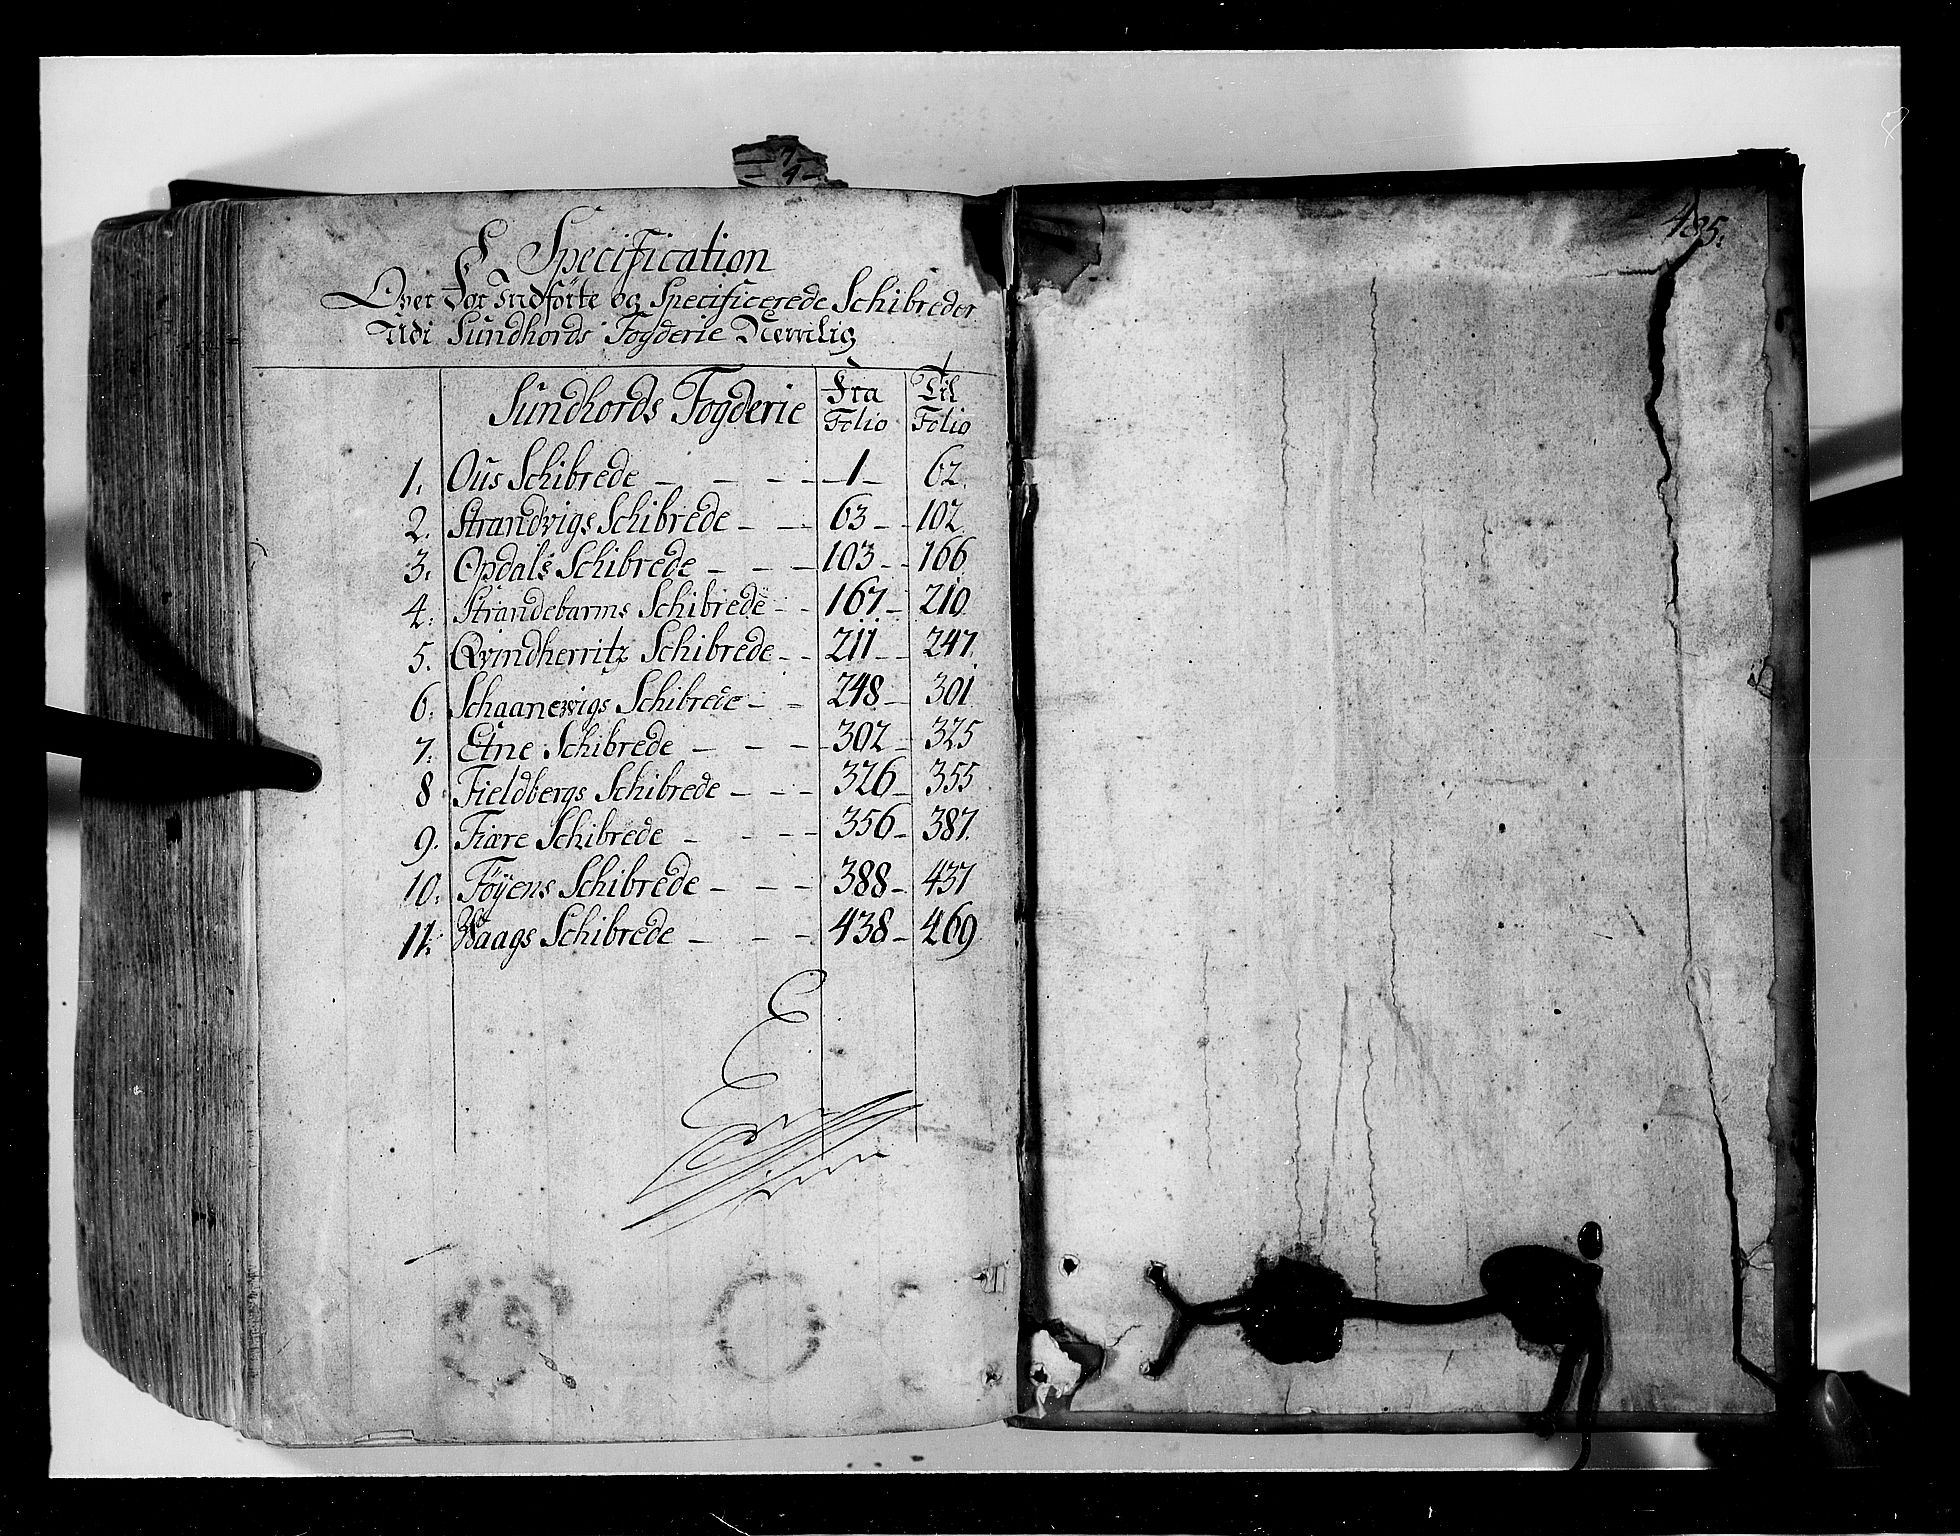 Specification
Over For Indförte og Specificerede Schibreder
Udi Sundhords Fogderie Nemlig
Sundhords Fogderie Fra Folio Til Folio
1. Ous Schibrede - - - - 1 - 62.
2. Strandvigs Schibrede - - 63 - - 102.
3. Opdals Schibrede - - - 103 - - 166
4. Strandebarms Schibrede - - 167 - 210
5. Qvindherritz Schibrede - - 211 - - 247.
6. Schaanevigs Schibrede - - 248 - 301
7. Etne Schibrede - - - - 302 - 325
8 Fieldbergs Schibrede - - - 326 - 355
9. Fiære Schibrede - - - - 356 - 387.
10. Föÿens Schibrede - - - 388 - 437
11. Waags Schibrede - - - 438 - 469
485.
7
4